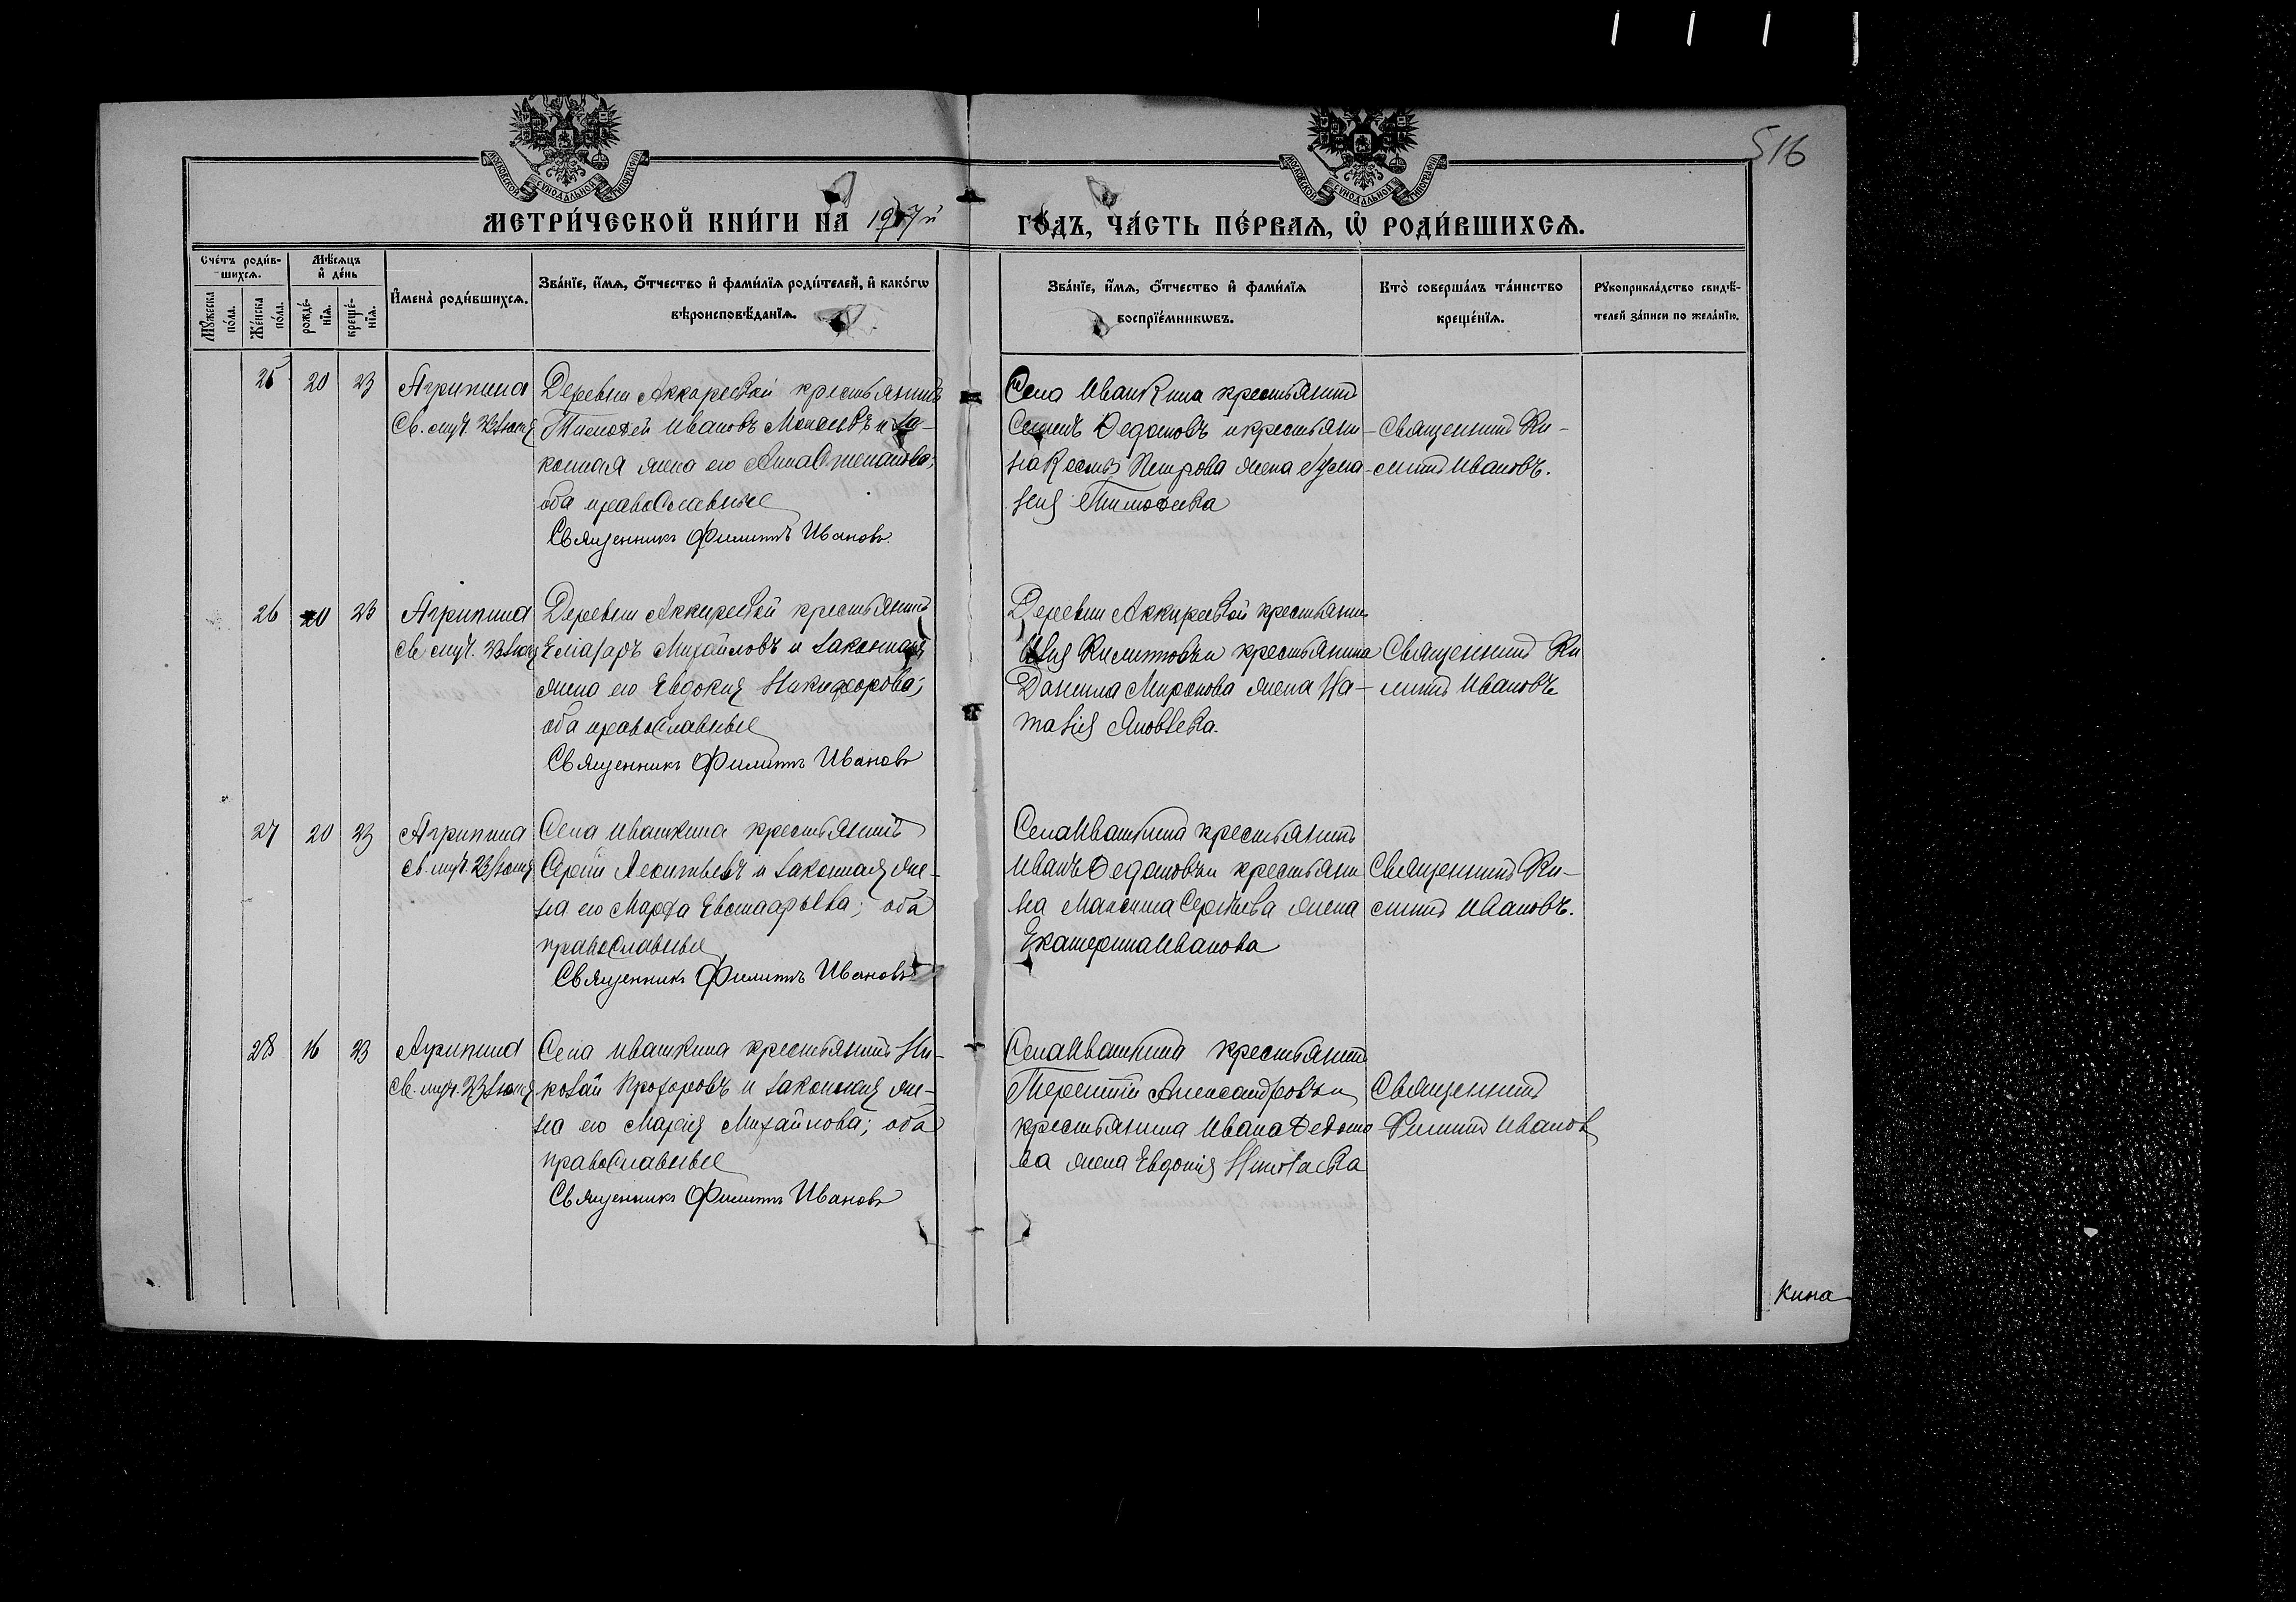 516
МОСКОВСКОЙ СѴНОДАЛЬНОЙ ТИПОГРАФІИ
МОСКОВСКОЙ СѴНОДАЛЬНОЙ ТИПОГРАФІИ
МЕТРИ́ЧЕСКОЙ КНИ́ГИ НА̀ 1917й
ГО́ДЪ, ЧА́СТЬ ПЕ́РВАѦ, Ѡ҆ РОДИ́ВШИХСѦ.
Сче́тъ роди́в-
шихсѧ.
Мѣ́сѧцъ
и҆ де́нь
Мꙋ́жеска по́ла.
Же́нска по́ла.
рожде́-
нїѧ.
креще́-
нїѧ.
И҆мена̀ роди́вшихсѧ.
Зва́нїе, и҆́мѧ, ѻ҆́тчество и҆ фами́лїѧ роди́телей, и҆ како́гѡ
вѣроисповѣ́данїѧ.
Зва́нїе, и҆́мѧ, ѻ҆́тчество и҆ фами́лїѧ
воспрїе́мникѡвъ.
Кто̀ соверша́лъ та́инство
креще́нїѧ.
Рꙋкоприкла́дство свидѣ́-
телей за́писи по жела́нїю.
25 20 23 Агрипина
Св. муч. 23 Іюня
Деревни Аккиревой крестьянинъ
Тимофей Ивановъ и за-
конная жена его Анна Степанова;
оба православные
Священникъ Филиппъ Ивановъ
Села Ивашкина крестьянинъ
Федотовъ и крестьяни-
на Петрова жена
Тимофеева
Священникъ Фи-
липпъ Ивановъ.
26 20 23 Агрипина
Св. муч. 23 Іюня
Деревни Аккиревой крестьянинъ
Елиазаръ Михайловъ и законная
жена его Евдокия Никифорова;
оба православные
Священникъ Филиппъ Ивановъ
Деревни Аккиревой крестьянинъ
Илия Филипповъ и крестьянина
Данила Миронова жена На-
талия Яковлева.
Священникъ Фи
липпъ Ивановъ
27 20 23 Агрипина
Св. муч. 23 Іюня
Села Ивашкина крестьянинъ
Сергій Леонтьевъ и законная же-
на его Марфа Евстафьева; оба
православные
Священникъ Филиппъ Ивановъ
Села Ивашкина крестьянинъ
Иванъ Федотовъ и крестьяни
на Максима Сергѣева жена
Екатерина Иванова
Священникъ Фи-
липпъ Ивановъ.
28 16 23 Агрипина
Св. муч. 23 Іюня
Села Ивашкина крестьянинъ Ни-
колай Прохоровъ и законная же-
на его Марія Михайлова; оба
православные
Священникъ Филиппъ Ивановъ
Села Ивашкина крестьянинъ
Терентій Александровъ и
крестьянина Ивана Федото
ва жена Евдокія Николаева
Священникъ
Филиппъ Ивановъ
кина